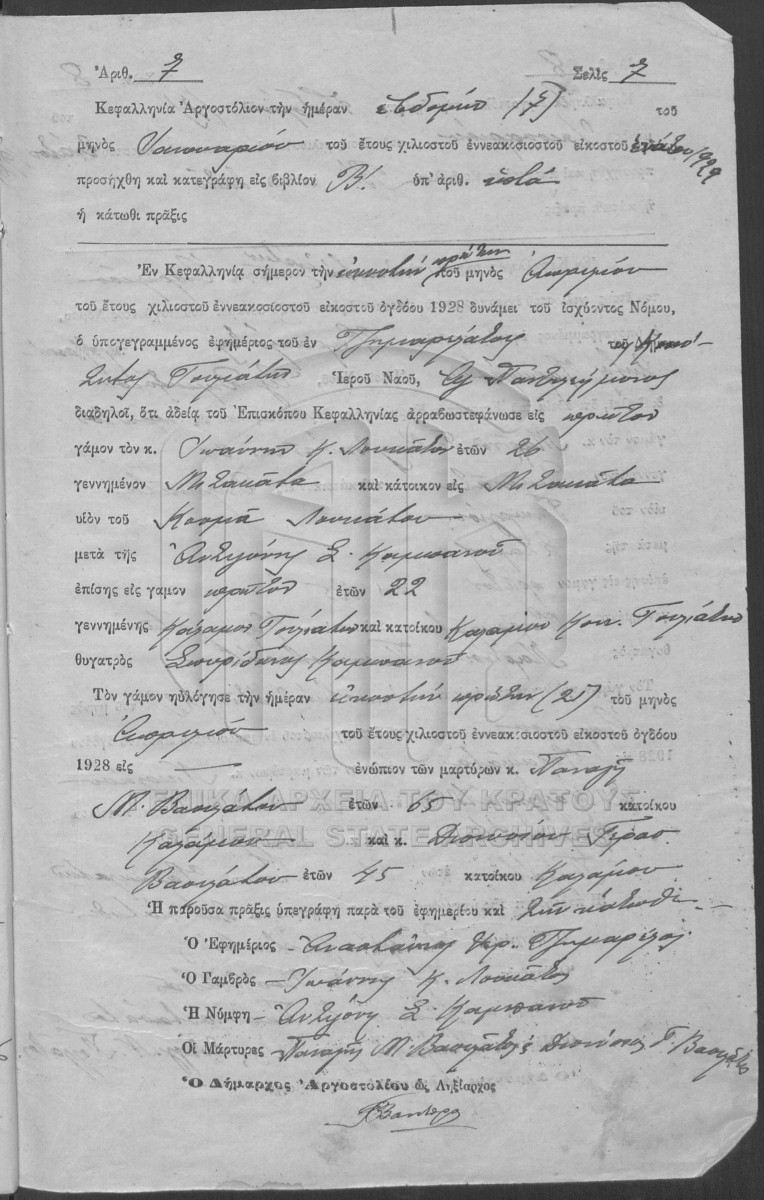 Ἀριθ. 7 Σελὶς 7
Κεφαλληνία Ἀργοστόλιον τὴν ἡμέραν εβδομην (7) τοῦ
μηνὸς Ιανουαρίου τοῦ ἔτους χιλιοστοῦ ἐννεακοσιοστοῦ εἰκοστοῦ ἐνάτου 1929
προσήχθη καὶ κατεγράφη εἰς βιβλίον Β! ὑπ' ἀριθ. ἑπτά
ἡ κάτωθι πρᾶξις
Ἐν Κεφαλληνίᾳ σήμερον τὴν εἰκοστὴν πρώτην τοῦ μηνὸς Απριλίου
τοῦ ἔτους χιλιοστοῦ ἐννεακοσιοστοῦ εἰκοστοῦ ὀγδόου 1928 δυνάμει τοῦ ἰσχύοντος Νόμου,
ὁ ὑπογεγραμμένος ἐφημέριος τοῦ ἐν
Ἱεροῦ Ναοῦ, Αγ Παντελεήμονος
διαδηλοῖ, ὅτι ἀδείᾳ τοῦ Ἐπισκόπου Κεφαλληνίας ἀρραβωστεφάνωσε εἰς πρῶτον
γάμον τὸν κ. Ιωάννην Κ. Λουκάτον ἐτῶν 26
γεννημένον Μιτακάτα καὶ κάτοικον εἰς Μιτακάτα
υἱὸν τοῦ Κοσμᾶ Λουκάτου
μετὰ τῆς Αντιγόνης Σ. Καμπανοῦ
ἐπίσης εἰς γαμον πρῶτον ἐτῶν 22
γεννημένης καὶ κατοίκου Καλάμου Κοιν.
θυγατρὸς Σπυρίδωνος Καμπανοῦ
Τὸν γάμον ηὐλόγησε τὴν ἡμέραν εἰκοστὴν πρώτην (21) τοῦ μηνὸς
Απριλίου τοῦ ἔτους χιλιοστοῦ ἐννεακοσιοστοῦ εἰκοστοῦ ὀγδόου
1928 εἰς — ἐνώπιον τῶν μαρτύρων κ. Παναγῆ
Μ. Βασιλάτου ἐτῶν 65 κατοίκου
ΓΕΝΙΚΑ ΑΡΧΕΙΑ ΤΟΥ ΚΡΑΤΟΥΣ
GENERAL STATE ARCHIVES
Καλάμου καὶ κ. Διονυσίου Γερασ.
Βασιλάτου ἐτῶν 45 κατοίκου Καλάμου
Ἡ παροῦσα πρᾶξις ὑπεγράφη παρὰ τοῦ ἐφημερίου καὶ τῶν κάτωθι
Ὁ Ἐφημέριος – Αναστάσιος
Ὁ Γαμβρὸς – Ιωάννης Κ. Λουκάτος
Ἡ Νύμφη – Αντιγόνη Σ. Καμπανοῦ
Οἱ Μάρτυρες Παναγῆς Μ. Βασιλάτος Διονύσιος Γ. Βασιλάτος
Ὁ Δήμαρχος Ἀργοστολίου ὡς Ληξίαρχος